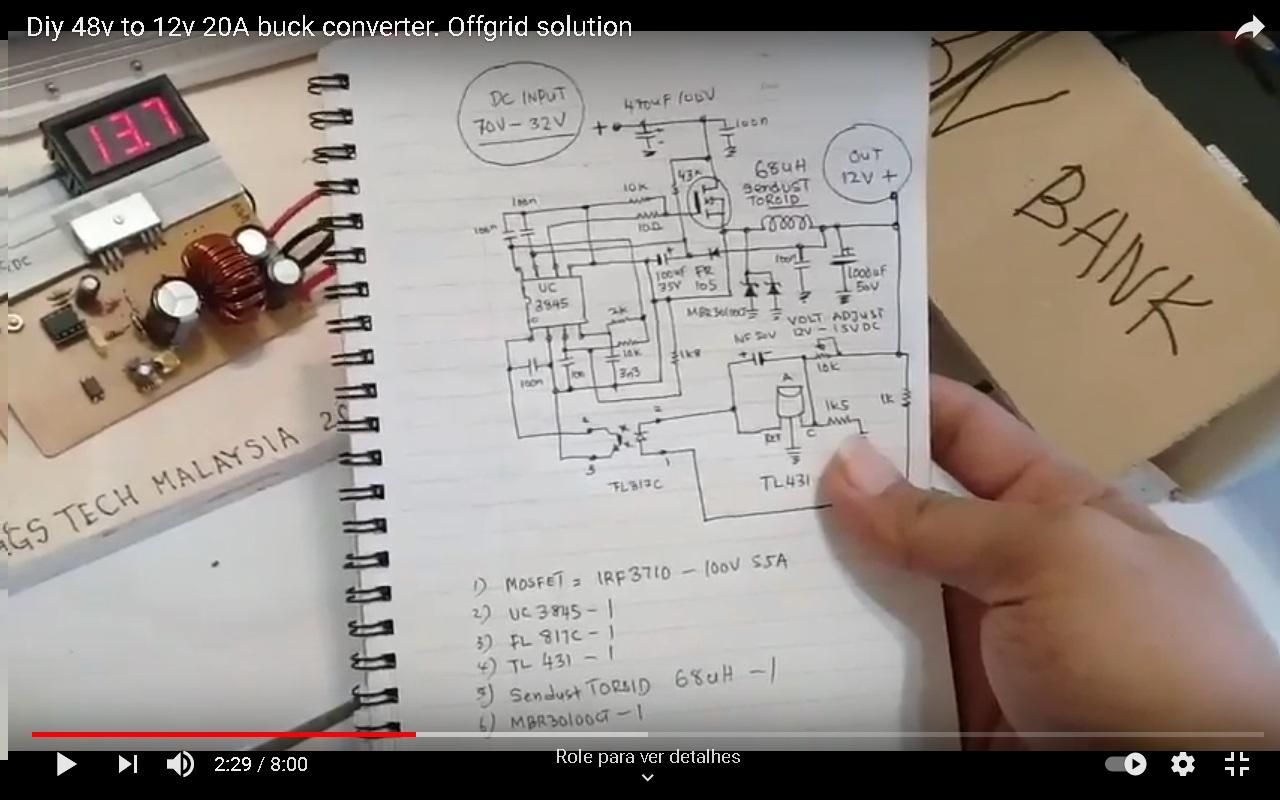 Diy 48v to 12v 20A buck converter. Offgrid solution
13.7
DC INPUT
70V - 32V
470uF/100V
+
100n
OUT
12V +
68uH
Sendust
TOROID
43K
10K
10Ω
100n
100n
UC
3845
100uF
35V
FR
105
100n
1000uF
50V
MBR30100CT
VOLT ADJUST
12V - 15VDC
2K
10K
3n3
1K8
100n
10n
50V
10K
1K
A
1K5
REF
C
2
1
3
FL817C
TL431
BANK
GGS TECH MALAYSIA
1) MOSFET = IRF3710 - 100V 55A
2) UC 3845 - 1
3) FL 817C - 1
4) TL 431 - 1
5) Sendust TOROID 68uH - 1
6) MBR30100CT - 1
2:29 / 8:00
Role para ver detalhes